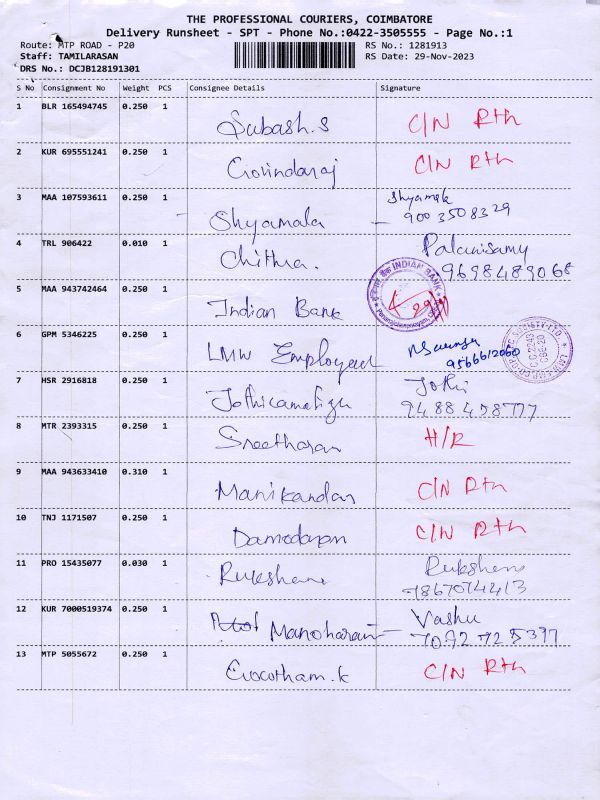 THE PROFESSIONAL COURIERS, COIMBATORE
Delivery Runsheet - SPT - Phone No.:0422-3505555 - Page No.:1
Route: MTP ROAD - P20 RS No.: 1281913
Staff: TAMILARASAN RS Date: 29-Nov-2023
DRS No.: DCJB128191301
S No Consignment No Weight PCS Consignee Details Signature
1 BLR 165494745 0.250 1 Subash.S C/N Rtn
2 KUR 695551241 0.250 1 Govindaraj C/N Rtn
3 MAA 107593611 0.250 1 Shyamala
9003508329
4 TRL 906422 0.010 1 Chithra. Palanisamy
9698489068
5 MAA 943742464 0.250 1 Indian Bank INDIAN BANK
6 GPM 5346225 0.250 1 LMW
9566612060
7 HSR 2916818 0.250 1 Jothi
9488458777
8 MTR 2393315 0.250 1 Sreetharan H/R
9 MAA 943633410 0.310 1 Manikandan C/N Rtn
10 TNJ 1171507 0.250 1 Damodaran C/N Rtn
11 PRO 15435077 0.030 1 Rukshana Rukshana
7867074413
12 KUR 7000519374 0.250 1 Manoharan Vashu
13 MTP 5055672 0.250 1 C/N Rtn